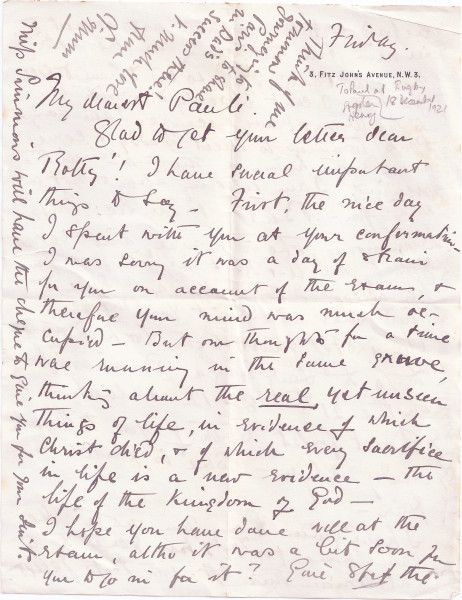 Friday.
3, FITZ JOHN'S AVENUE, N.W.3.
To Paul at Rugby
18 December 1921
My dearest Paul.
Glad to get your letter dear
Botty! I have several important
things to say — First, the nice day
I spent with you at your confirmation —
I was sorry it was a day of strain
for you on account of the exam, &
therefore your mind was much oc-
cupied — But our thoughts for a time
were running in the same groove,
thinking about the real, yet unseen
things of life, in evidence of which
Christ died, & of which every sacrifice
in life is a new evidence — the
life of the Kingdom of God —
I hope you have done well at the
exam, altho it was a bit soon for
you to go in for it?
Miss Simmons will have the cheque to give you for your
Think of me
to
in Dad's
success there!
much love
from
Mum